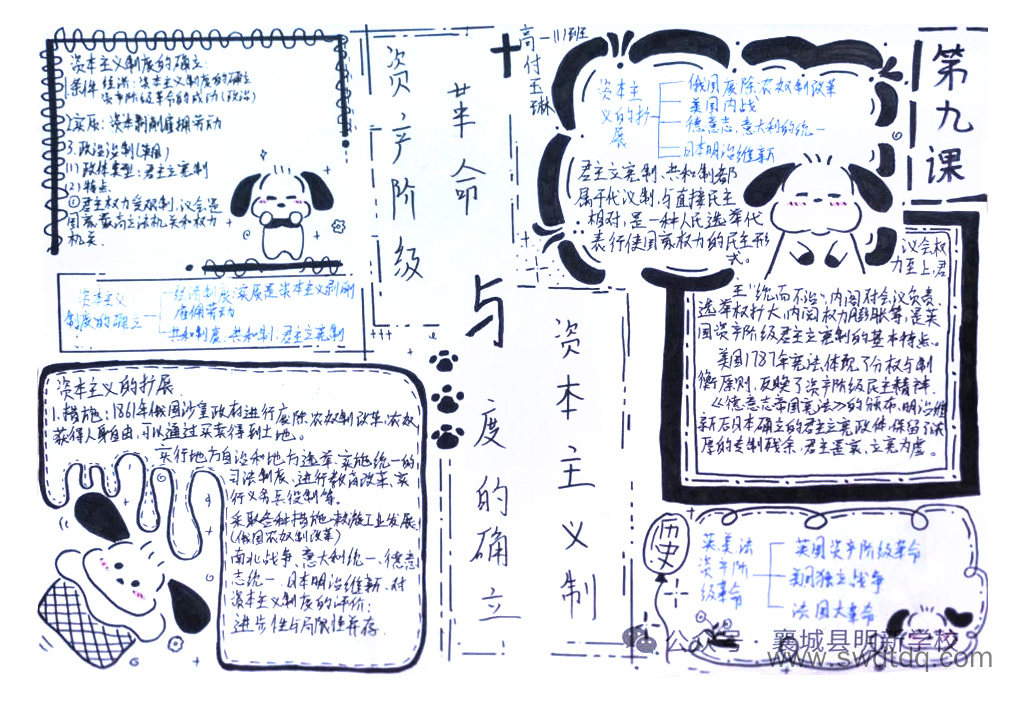 资本主义制度的确立
1.条件 经济:资本主义制度的确立
资产阶级革命的成功(政治)
2.实质:资本剥削雇佣劳动
3.政治治制(英国)
(1)政体类型:君主立宪制
(2)特点
①君主权力受限制,议会是
国家最高立法机关和权力
机关.
资本主义
制度的确立
经济制度:实质是资本主义剥削
雇佣劳动
共和制度、共和制,君主立宪制
资本主义的扩展
1.措施:1861年俄国沙皇政府进行废除农奴制改革,农奴
获得人身自由,可以通过买卖得到土地。
实行地方自治和地方选举,实施统一的
司法制度、进行教育改革、实
行义务兵役制等。
采取各种措施鼓励工业发展
(俄国农奴制改革)
南北战争、意大利统一、德意
志统一、日本明治维新、对
资本主义制度的评价:
进步性与局限性并存
资产阶级
革命
与
资本主义制
度的确立
高一(1)班
付玉琳
第九课
资本主
义的扩
展
俄国废除农奴制改革
美国内战
德意志、意大利的统一
日本明治维新
君主立宪制、共和制都
属于代议制,与直接民主
相对,是一种人民选举代
表行使国家权力的民主形
式。
议会权
力至上,君
主"统而不治",内阁对会议负责,
选举权扩大,内阁权力膨胀等,是英
国资产阶级君主立宪制的基本特点。
美国1787年宪法体现了分权与制
衡原则,反映了资产阶级民主精神.
《德意志帝国宪法》的颁布,明治维
新后日本确立的君主立宪政体,保留了浓
厚的专制残余,君主是实,立宪为虚。
历史
英美法
资产阶
级革命
英国资产阶级革命
美国独立战争
法国大革命
公众号·襄城县明新学校
www.swdtdq.com